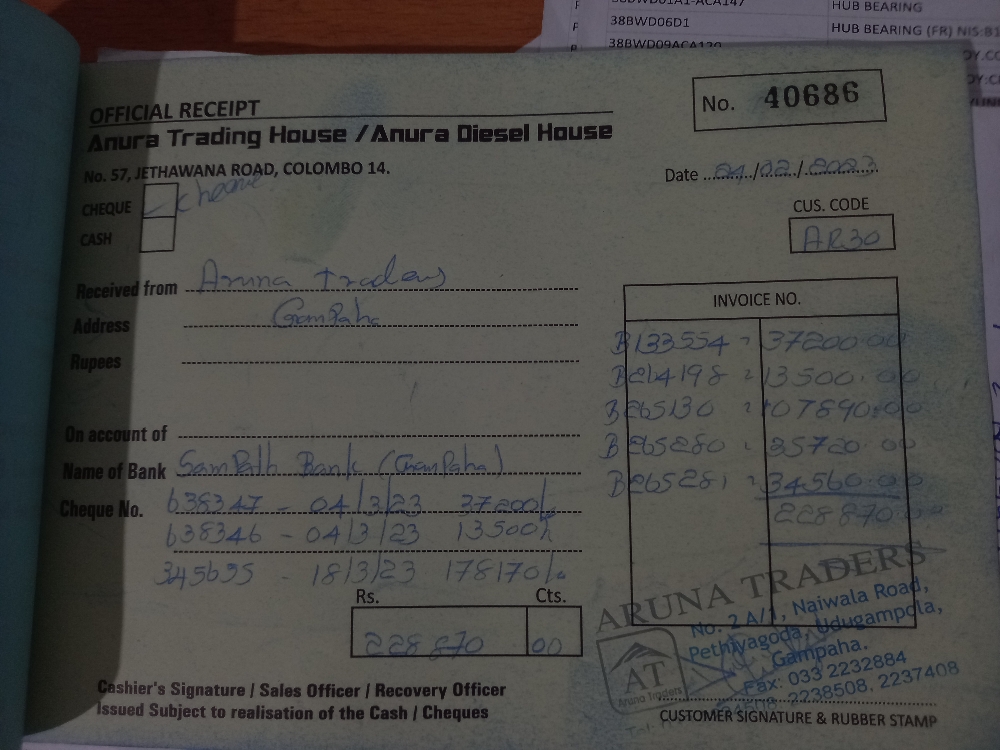 38BWD01A1-ACA147 HUB BEARING
38BWD06D1 HUB BEARING (FR) NIS:B1
38BWD09ACA120
OFFICIAL RECEIPT
No. 40686
Anura Trading House / Anura Diesel House
No. 57, JETHAWANA ROAD, COLOMBO 14.
Date 24/02/2023
CHEQUE - cheque
CASH
CUS. CODE
AR30
Received from Aruna traders
Address GamPaha
Rupees
On account of
Name of Bank SamPath Bank (GamPaha)
Cheque No. 638347 - 04/3/23 37200/-
638346 - 04/3/23 13500/-
345695 - 18/3/23 178170/-
Rs. Cts.
228 870 00
INVOICE NO.
B133554 = 37200.00
B214198 = 13500.00
B265130 = 107890.00
B265280 = 35720.00
B265281 = 34560.00
228 870.00
ARUNA TRADERS
No. 2 A/1, Naiwala Road,
Pethiyagoda, Udugampola,
Gampaha.
Fax: 033 2232884
2238508, 2237408
AT
Aruna Traders
Cashier's Signature / Sales Officer / Recovery Officer
Issued Subject to realisation of the Cash / Cheques
CUSTOMER SIGNATURE & RUBBER STAMP